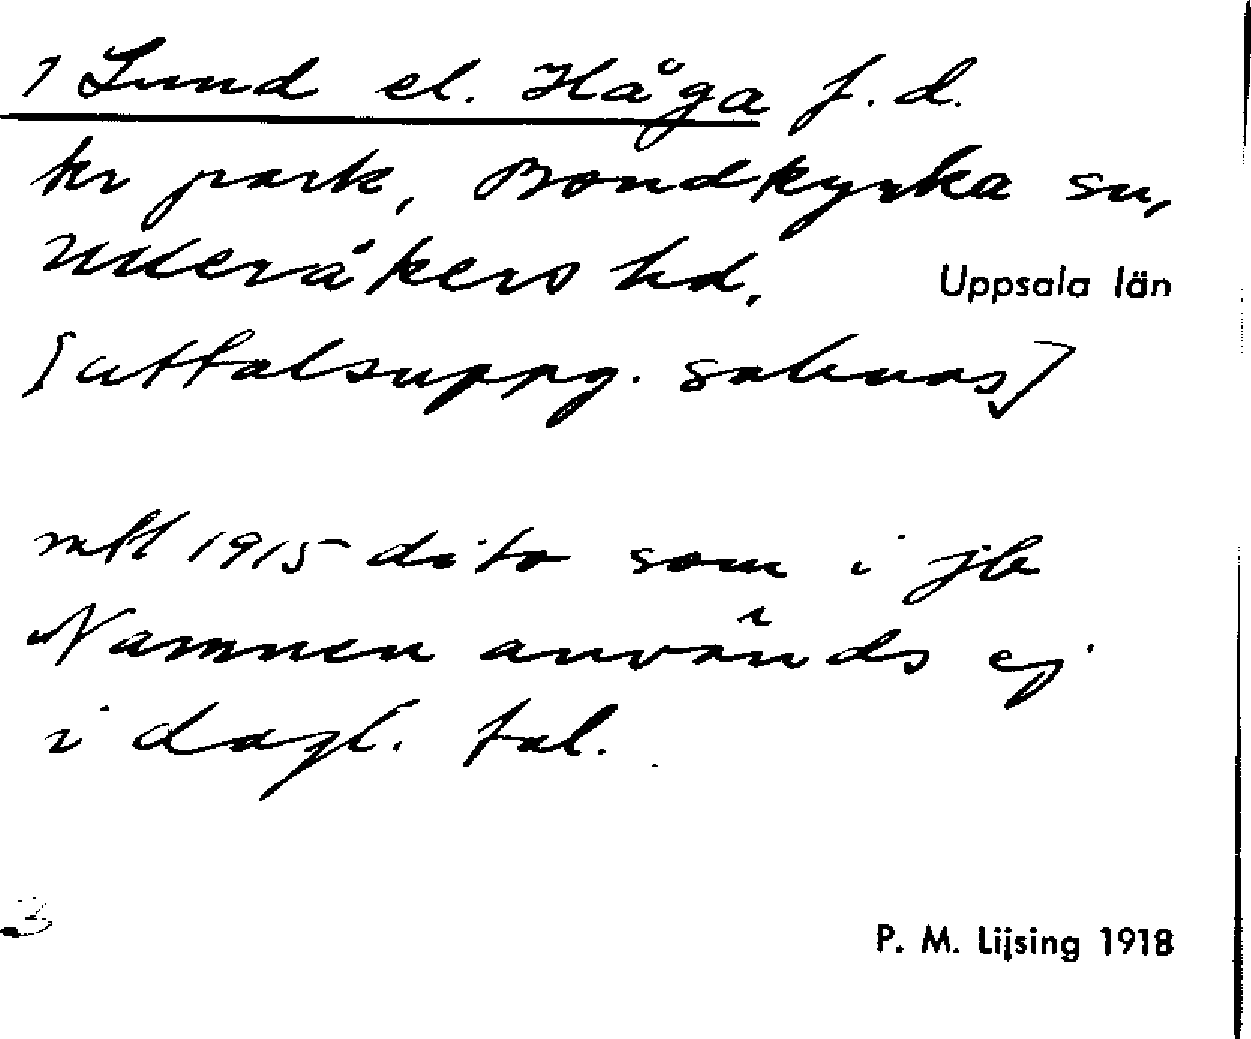 1 Lund el. Håga f.d.
kr park, Bondkyrka sn,
Ulleråkers hd, Uppsala län
[uttalsuppg. saknas]
mtl 1915 dito som i jb
Namnen används ej
i dagl. tal.
3
P. M. Lijsing 1918